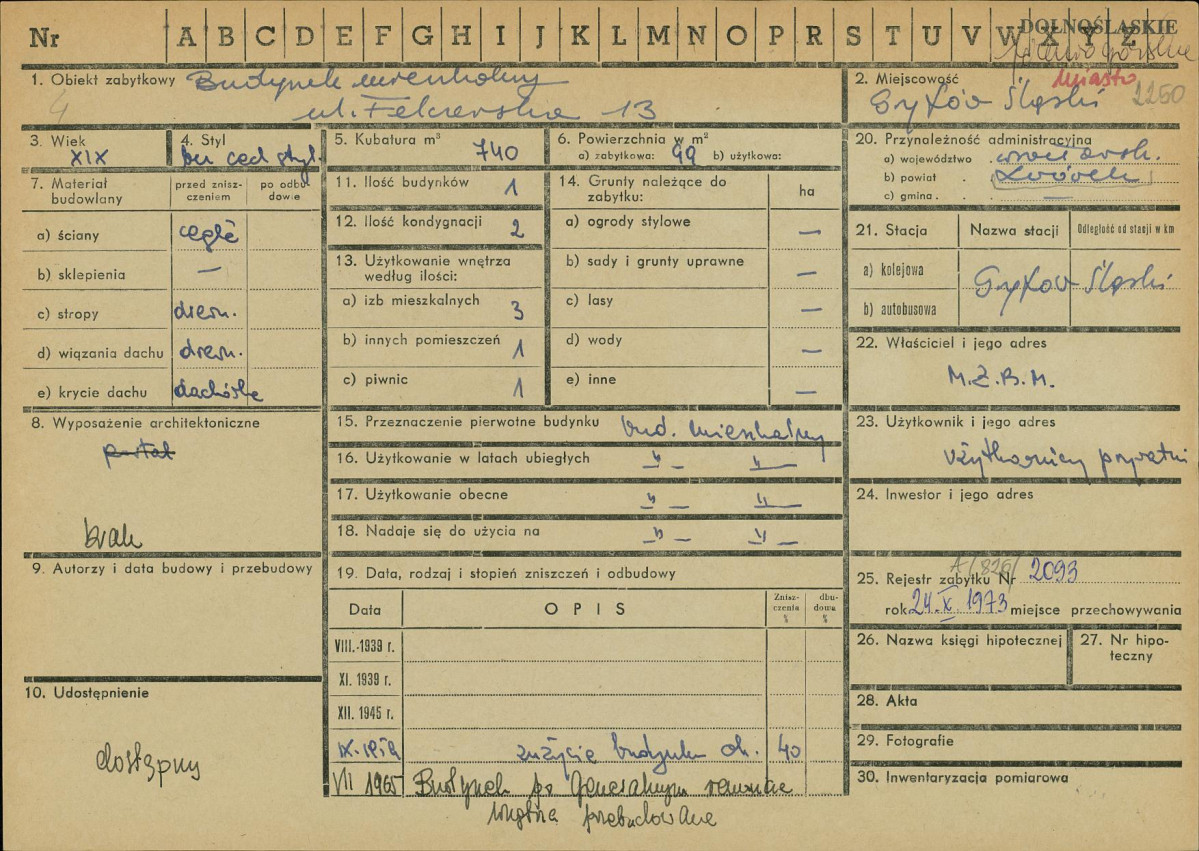 Nr A B C D E F G H I J K L M N O P R S T U V W X Y Z
DOLNOŚLĄSKIE
miasto
2250
1. Obiekt zabytkowy Budynek mieszkalny
4 ul. Felczerska 13
2. Miejscowość
Gryfów Śląski
3. Wiek
XIX
4. Styl
bez cech styl.
5. Kubatura m³ 740
6. Powierzchnia w m²
a) zabytkowa: 99 b) użytkowa:
20. Przynależność administracyjna
a) województwo wrocławsk.
b) powiat Lwówek
c) gmina —
7. Materiał budowlany
przed zniszczeniem
po odbudowie
a) ściany cegła
b) sklepienia —
c) stropy drewn.
d) wiązania dachu drewn.
e) krycie dachu dachówka
11. Ilość budynków 1
12. Ilość kondygnacji 2
13. Użytkowanie wnętrza
według ilości:
a) izb mieszkalnych 3
b) innych pomieszczeń 1
c) piwnic 1
14. Grunty należące do
zabytku:
ha
a) ogrody stylowe —
b) sady i grunty uprawne —
c) lasy —
d) wody —
e) inne —
21. Stacja Nazwa stacji Odległość od stacji w km
a) kolejowa
b) autobusowa
Gryfów Śląski
22. Właściciel i jego adres
M.Z.B.M.
8. Wyposażenie architektoniczne
portal
brak
15. Przeznaczenie pierwotne budynku bud. mieszkalny
16. Użytkowanie w latach ubiegłych —"— —"—
17. Użytkowanie obecne —"— —"—
18. Nadaje się do użycia na —"— —"—
23. Użytkownik i jego adres
użytkownicy prywatni
24. Inwestor i jego adres
9. Autorzy i data budowy i przebudowy
10. Udostępnienie
dostępny
19. Data, rodzaj i stopień zniszczeń i odbudowy
Data OPIS Zniszczenia % dbudowa %
VIII.-1939 r.
XI. 1939 r.
XII. 1945 r.
zużycie budynku ok. 40
VII 1965 Budynek po generalnym remoncie
wnętrza przebudowane
A/826/
25. Rejestr zabytku Nr 2093
rok 24.X.1973 miejsce przechowywania
26. Nazwa księgi hipotecznej
27. Nr hipoteczny
28. Akta
29. Fotografie
30. Inwentaryzacja pomiarowa